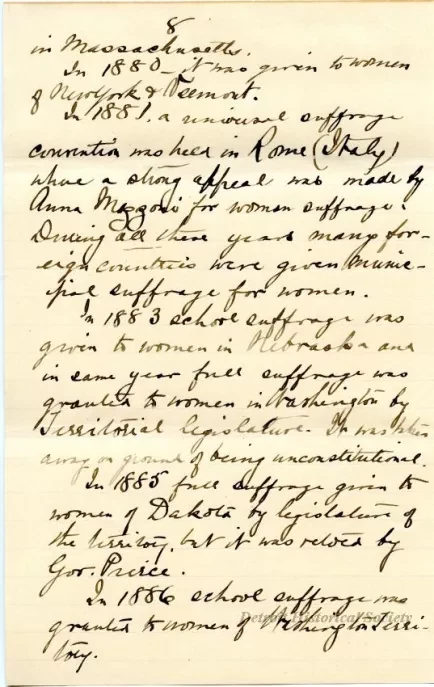 8
in Massachusetts.
In 1880 - it was given to women
of New York & Vermont.
In 1881, a universal suffrage
convention was held in Rome (Italy)
where a strong appeal was made by
Anna Mozzoni for women suffrage.
During all these years many for-
eign countries were given munic-
ipal suffrage for women.
In 1883 school suffrage was
given to women in Nebraska and
in same year full suffrage was
granted to women in Washington by
Territorial legislature. It was taken
away on ground of being unconstitutional.
In 1885 full suffrage given to
women of Dakota by legislature of
the territory, but it was vetoed by
Gov. Pierce.
In 1886 school suffrage was
granted to women of Washington Terri-
tory.
Detroit Historical Society